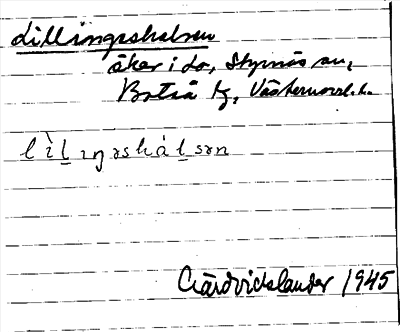 dillingshalsen
åker i do, Styrnäs sn,
Boteå tg, Västernorrl. l.
lìlıŋəshálsən
Gärd Widlander 1945